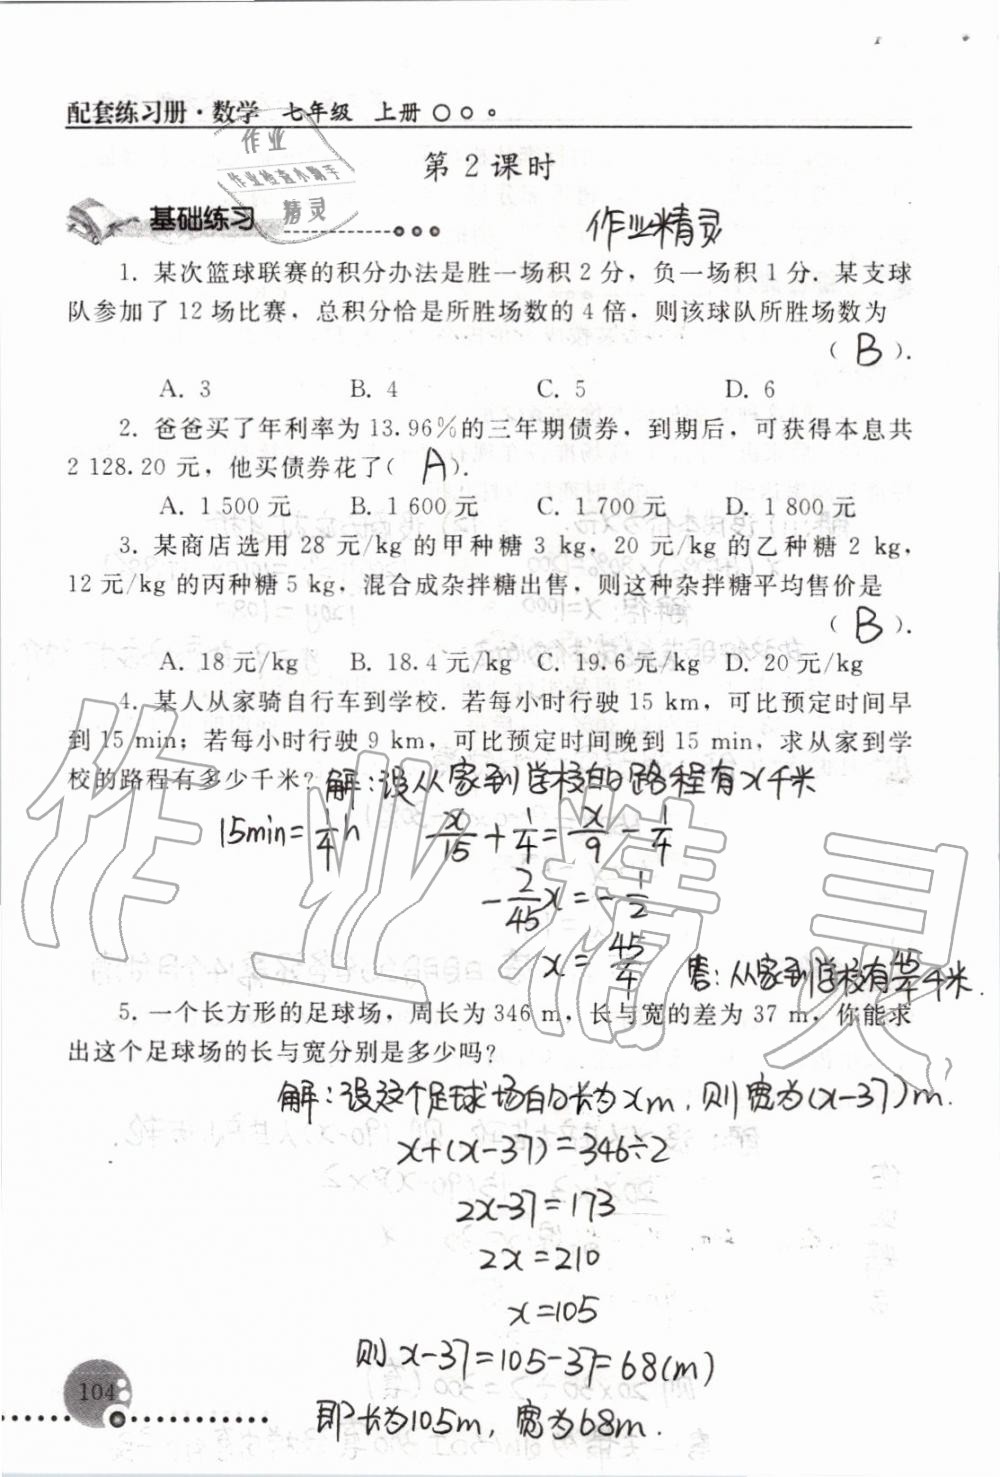 配套练习册·数学 七年级 上册
第 2 课时
作业
作业检查小助手
精灵
基础练习
作业精灵
1. 某次篮球联赛的积分办法是胜一场积 2 分，负一场积 1 分. 某支球
队参加了 12 场比赛，总积分恰是所胜场数的 4 倍，则该球队所胜场数为
( B ).
A. 3 B. 4 C. 5 D. 6
2. 爸爸买了年利率为 13.96%的三年期债券，到期后，可获得本息共
2 128.20 元，他买债券花了( A ).
A. 1 500 元 B. 1 600 元 C. 1 700 元 D. 1 800 元
3. 某商店选用 28 元/kg 的甲种糖 3 kg，20 元/kg 的乙种糖 2 kg，
12 元/kg 的丙种糖 5 kg，混合成杂拌糖出售，则这种杂拌糖平均售价是
( B ).
A. 18 元/kg B. 18.4 元/kg C. 19.6 元/kg D. 20 元/kg
4. 某人从家骑自行车到学校. 若每小时行驶 15 km，可比预定时间早
到 15 min；若每小时行驶 9 km，可比预定时间晚到 15 min，求从家到学
校的路程有多少千米? 解:设从家到学校的路程有x千米
15min=1/4 h x/15+1/4=x/9-1/4
-2/45x=-1/2
x=45/4 答:从家到学校有45/4千米.
5. 一个长方形的足球场，周长为 346 m，长与宽的差为 37 m，你能求
出这个足球场的长与宽分别是多少吗?
解:设这个足球场的长为xm,则宽为(x-37)m.
x+(x-37)=346÷2
2x-37=173
2x=210
x=105
则x-37=105-37=68(m)
即长为105m,宽为68m.
104
作业精灵